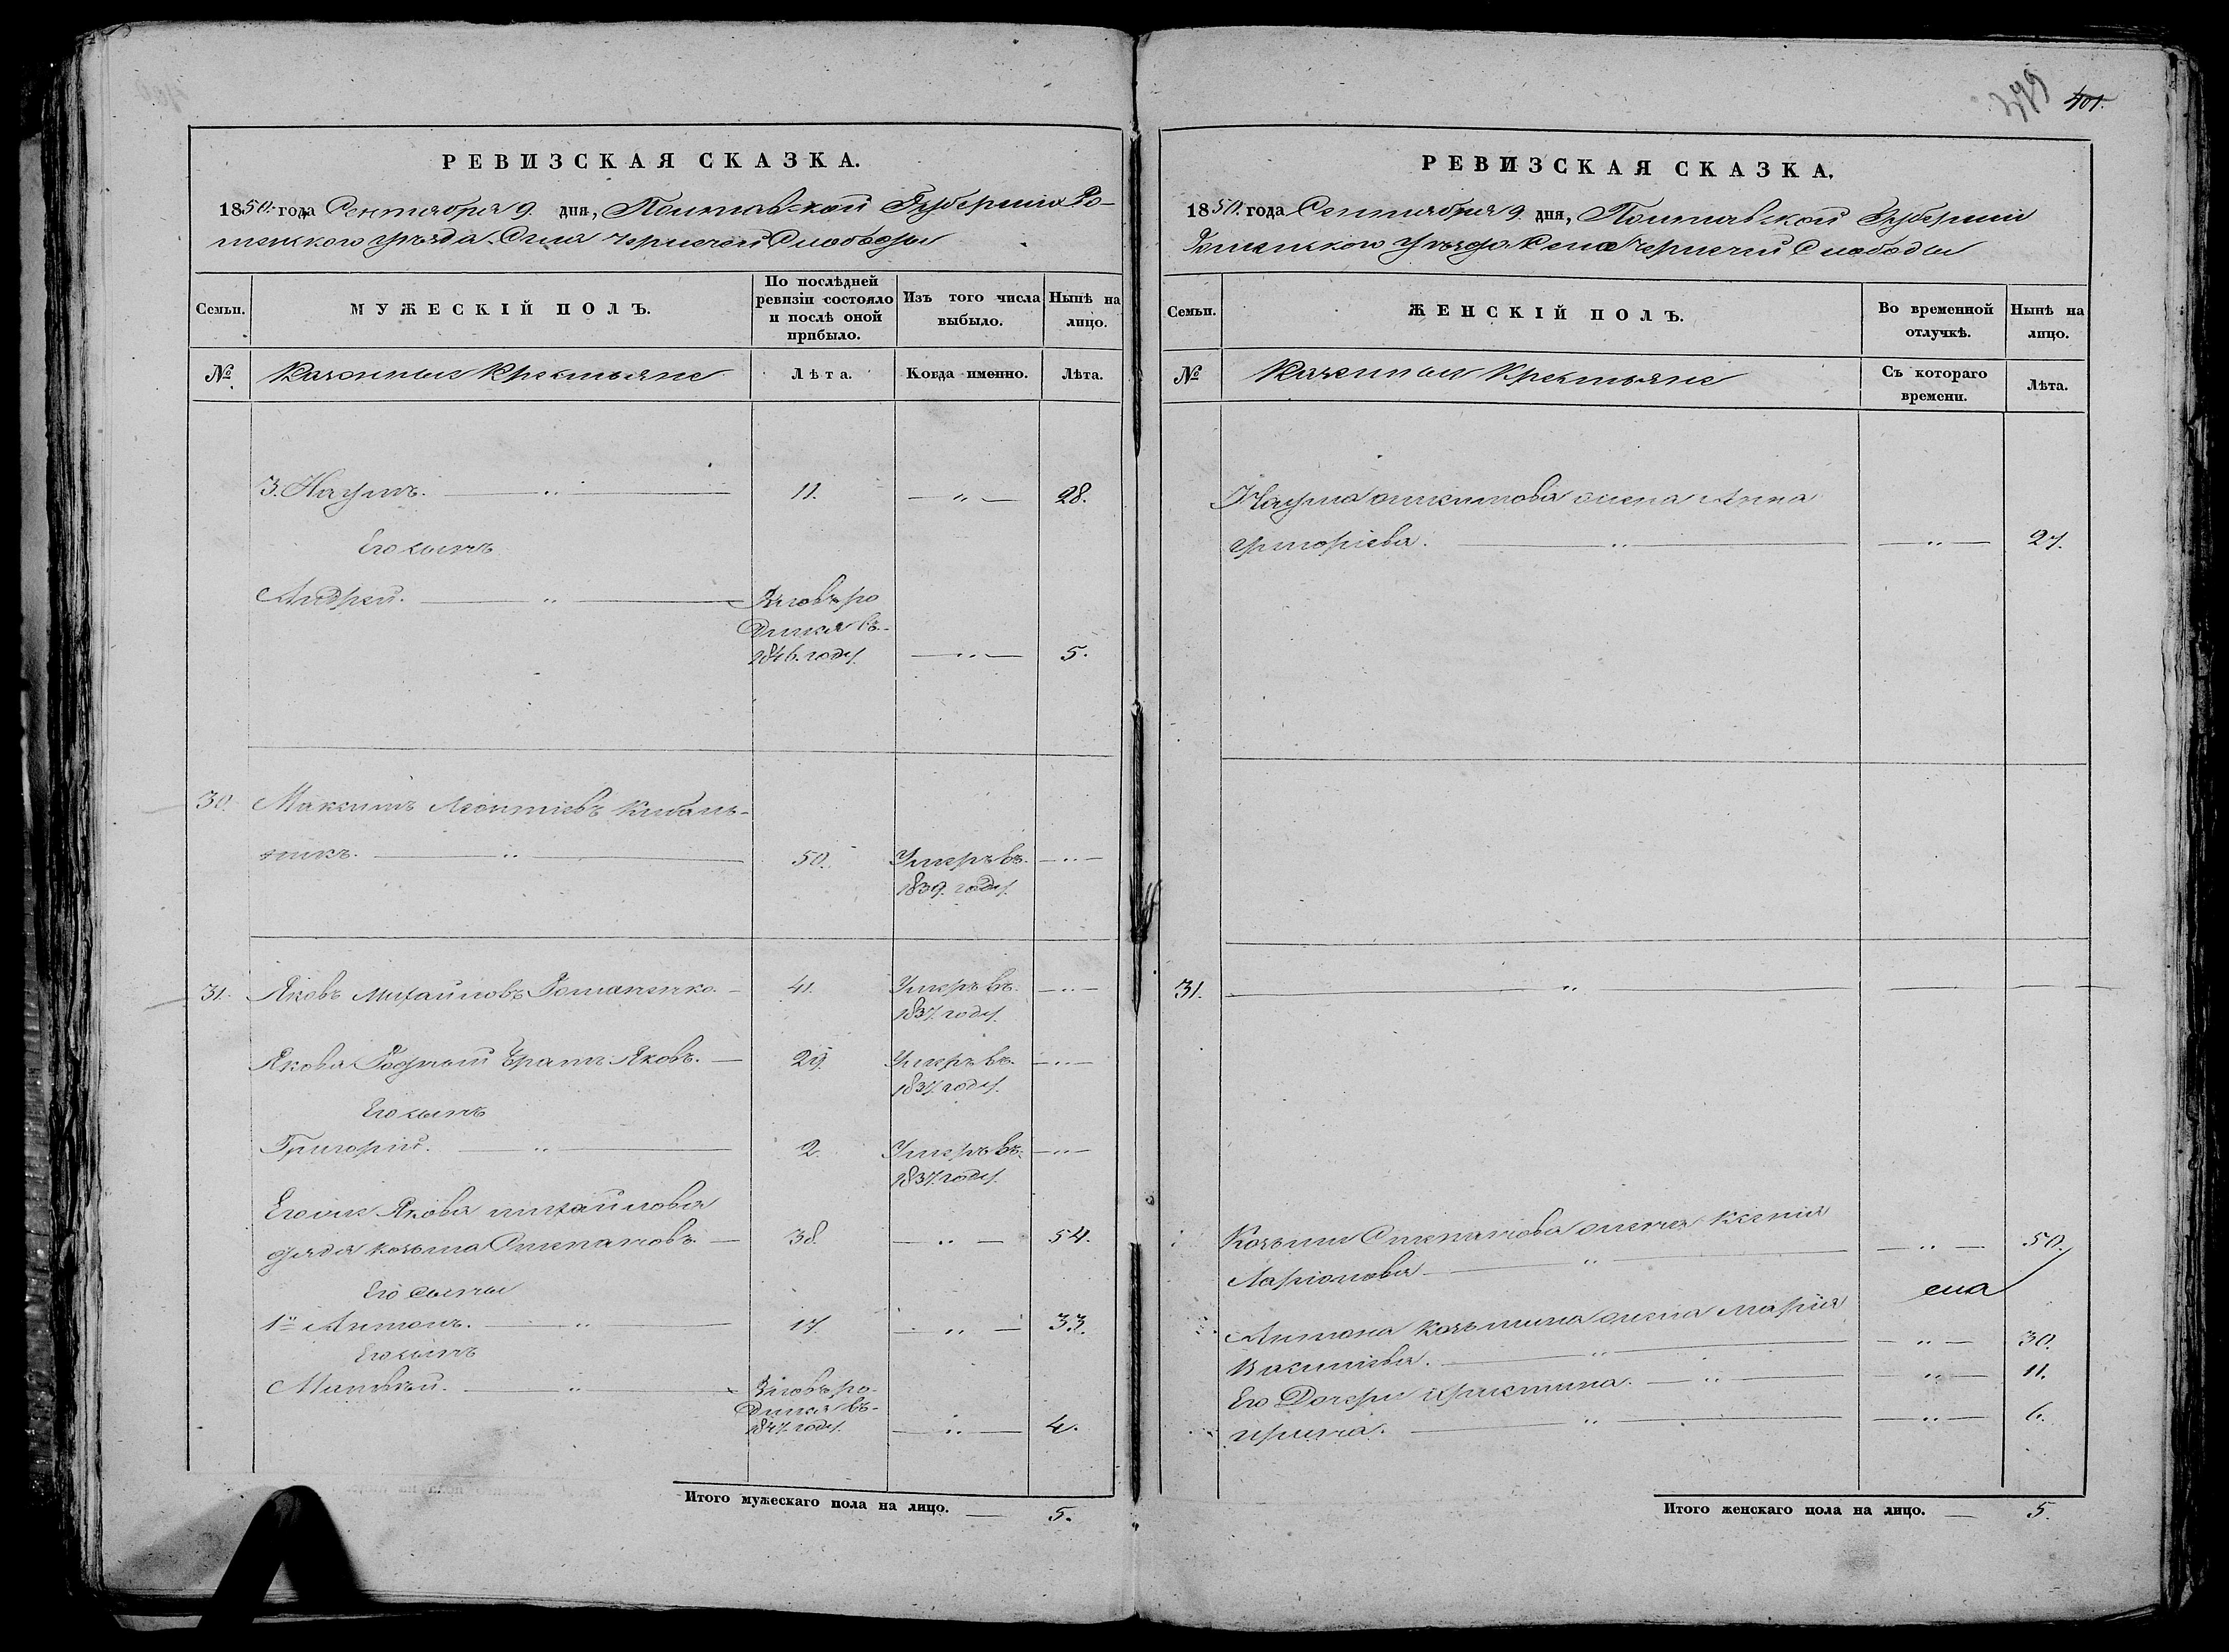 РЕВИЗСКАЯ СКАЗКА.
1850. года Сентября 9. дня, Полтавской Губернии Ро-
менского уезда Села Чернечей Слободы
Семьи.
МУЖЕСКІЙ ПОЛЪ.
По послѣдней ревизіи состояло и послѣ оной прибыло.
Изъ того числа выбыло.
Нынѣ на лицо.
№
Казенные Крестьяне
Лѣта.
Когда именно.
Лѣта.
3. Наумъ. — 11. — 28.
Его сынъ
Андрей. — Вновь ро
дился въ
1846. году. — 5.
30. Максимъ Леонтіевъ Кибаль-
никъ. — 50. Умеръ въ —
1839. году.
31. Яковъ Михайловъ Романенко. — 41. Умеръ въ —
1837. году.
Якова Родный братъ Яковъ. — 29. Умеръ въ —
1837. году.
Его сынъ
Григорій. — 2. Умеръ въ —
1837. году.
Его же Якова Михайлова
дядя Козьма Степановъ. — 38. — 54.
Его сыны
1й Антонъ. — 17. — 33.
Его сынъ
Матвѣй. — Вновь ро-
дился въ
1847. году. — 4.
Итого мужескаго пола на лицо. — 5.
399 401.
РЕВИЗСКАЯ СКАЗКА.
1850. года Сентября 9. дня, Полтавской Губернии
Роменского Уезда Села Чернечей Слободы
Семьи.
ЖЕНСКІЙ ПОЛЪ.
Во временной отлучкѣ.
Нынѣ на лицо.
№
Казенные Крестьяне
Съ котораго времени.
Лѣта.
Наума жена Анна
Григоріева. — 27.
31. —
Козьмы Степанова жена Ксенія
Ларіонова — 50.
Антона Козьмина жена Марія
Василіева. — 30.
Его Дочери Христина. — 11.
Ирина. — 6.
Итого женскаго пола на лицо. — 5.